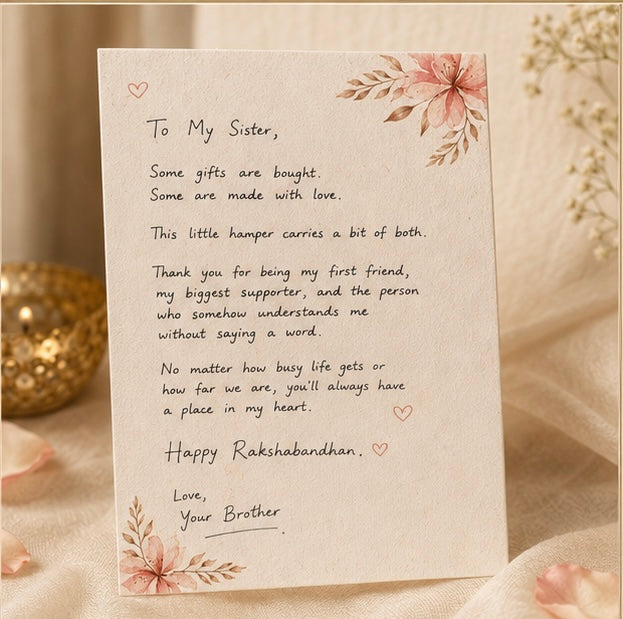 To My Sister,
Some gifts are bought.
Some are made with love.
This little hamper carries a bit of both.
Thank you for being my first friend,
my biggest supporter, and the person
who somehow understands me
without saying a word.
No matter how busy life gets or
how far we are, you'll always have
a place in my heart.
Happy Rakshabandhan.
Love,
Your Brother